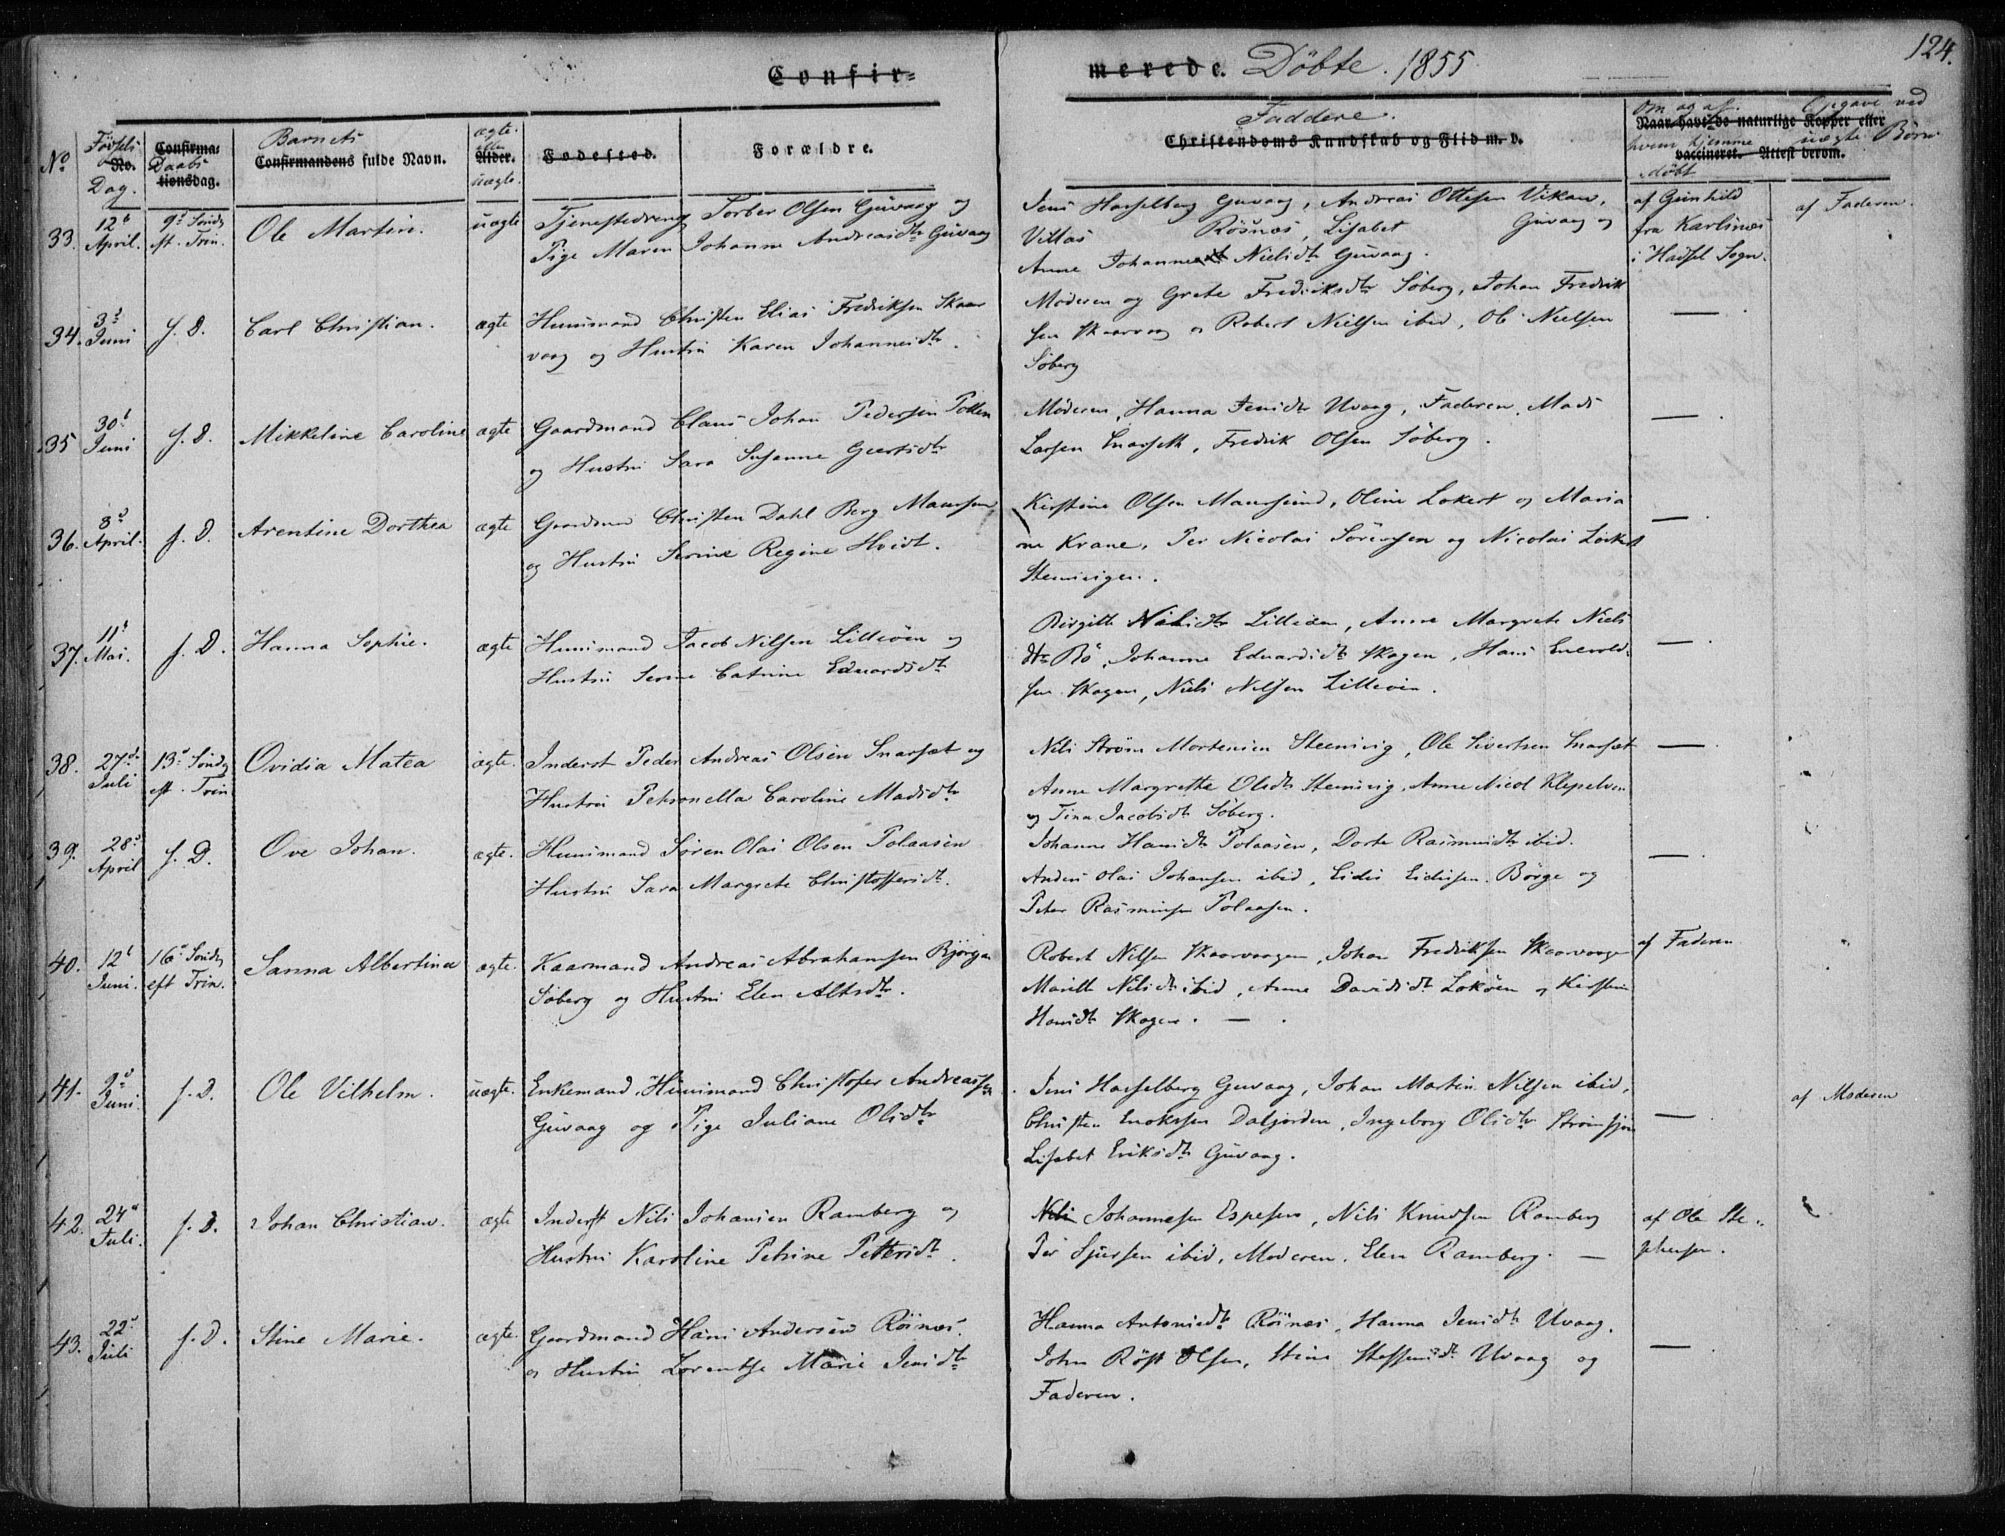 Confir=
merede. Döbte. 1855.
124.
No
Fødsels
No.
Dag.
Confirma=
Daabs
tionsdag.
Barnets
Confirmandens fulde Navn.
ægte
eller
Alder.
uægte
Fødested.
Forældre.
Faddere.
Christendoms Kundskab og Flid m. v.
Om og af
Naar havt de naturlige Kopper eller
hvem hjemme
vaccineret. Attest derom.
døbt
Opgave ved
uægte Börn
33. 12t April. 9d Söndg eft. Trin. Ole Martin. uægte Tjenestedreng Torber Olsen Guvaag og
Pige Maren Johanne Andreasdtr Guvaag
Jens Hasselberg Guvaag, Andreas Ottesen Viken,
Rösnes, Lisabet Guvaag og
Anne Johanne Nielsdtr Guvaag.
af Gunhild
fra Karlsnes
i Hadsel Sogn.
af Faderen.
34. 3d Juni f. D. Carl Christian. ægte Huusmand Christen Elias Fredriksen Skaar
vaag og Hustru Karen Johannesdtr.
Moderen og Grete Fredriksdtr Söberg, Johan Fredrik
sen Skaarvaag og Robert Nielsen ibid, Ole Nielsen
Söberg
—.
35 30t Juni f. D. Mikkeline Caroline ægte Gaardmand Claus Johan Pedersen Pollen
og Hustru Sara Susanne Geertsdtr
Moderen, Hanna Jensdtr Uvaag, Faderen, Mads
Larsen Snarseth, Fredrik Olsen Söberg.
—.
36. 3d April. f. D. Arentine Dorthea ægte Gaardmand Christen Dahl Berg Maursund
og Hustru Serine Regine Hvidt.
Kirstine Olsen Maursund, Oline Lokert og Maria
ne Krane, Per Nicolai Sörensen og Nicolai Lokert
Steinvigen.
—.
37. 11t Mai. f. D. Hanna Sophie. ægte Huusmand Jacob Nilsen Lilleöen og
Hustru Serine Catrine Eduardsdtr
Birgitte Nielsdtr Lilleöen, Anne Margrete Niels
dtr Bö, Johanne Eduardsdtr Skagen, Hans Enevold-
sen Skagen, Niels Nilsen Lilleöen.
—.
38. 27de Juli 13d Söndg eft. Trin Ovidia Matea ægte. Inderst Peder Andreas Olsen Snarset og
Hustru Petronella Caroline Madsdtr
Nils Ström Mortensen Steinvig, Ole Sivertsen Snarset
Anne Margrethe Olsdtr Steinvig, Anne Nicol Klepelven
og Tina Jacobsdtr Söberg.
—.
39. 28d April f. D. Ove Johan. ægte. Huusmand Sören Olai Olsen Polaasen
Hustru Sara Margrete Christoffersdtr.
Johanne Hansdtr Polaasen, Dorte Rasmusdtr ibid.
Anders Olai Johansen ibid, Eidis Eidisen Börge og
Peter Rasmusen Polaasen.
—.
40. 12t Juni. 16d Söndg eft Trin. Sanna Albertina ægte. Kaarmand Andreas Abrahamsen Björgan
Söberg og Hustru Elen Altsdtr.
Robert Nilsen Skaarvaagen, Johan Fredriksen Skaarvaagen
Marith Nilsdtr ibid, Anne Davidsdtr Loköen og Kirstine
Hansdtr Skagen. — .
af Faderen
41. 9d Juni. f. D. Ole Vilhelm. uægte. Enkemand, Huusmand Christofer Andreassen
Guvaag og Pige Juliane Olsdtr
Jens Hasselberg Guvaag, Johan Martin Nilsen ibid,
Christen Enoksen Daljorden, Ingeborg Olsdtr Strömfjord
Lisabet Eriksdtr Guvaag.
—.
af Moderen
42. 24d Juli. f. D. Johan Christian. ægte Inderst Nils Johansen Ramberg og
Hustru Karoline Petrine Pettersdtr.
Nils Johannesen Espesen, Nils Knudsen Ramberg
Per Sjursen ibid, Moderen, Elen Ramberg. —
af Ole Ste-
phensen.
43. 22d Juli f. D. Stine Marie. ægte. Gaardmand Hans Andersen Röinæs.
og Hustru Lorentse Marie Jensdtr
Hanna Antonsdtr Röinæs, Hanna Jensdtr Uvaag,
John Röst Olsen, Stine Steffensdtr Uvaag og
Faderen.
—.